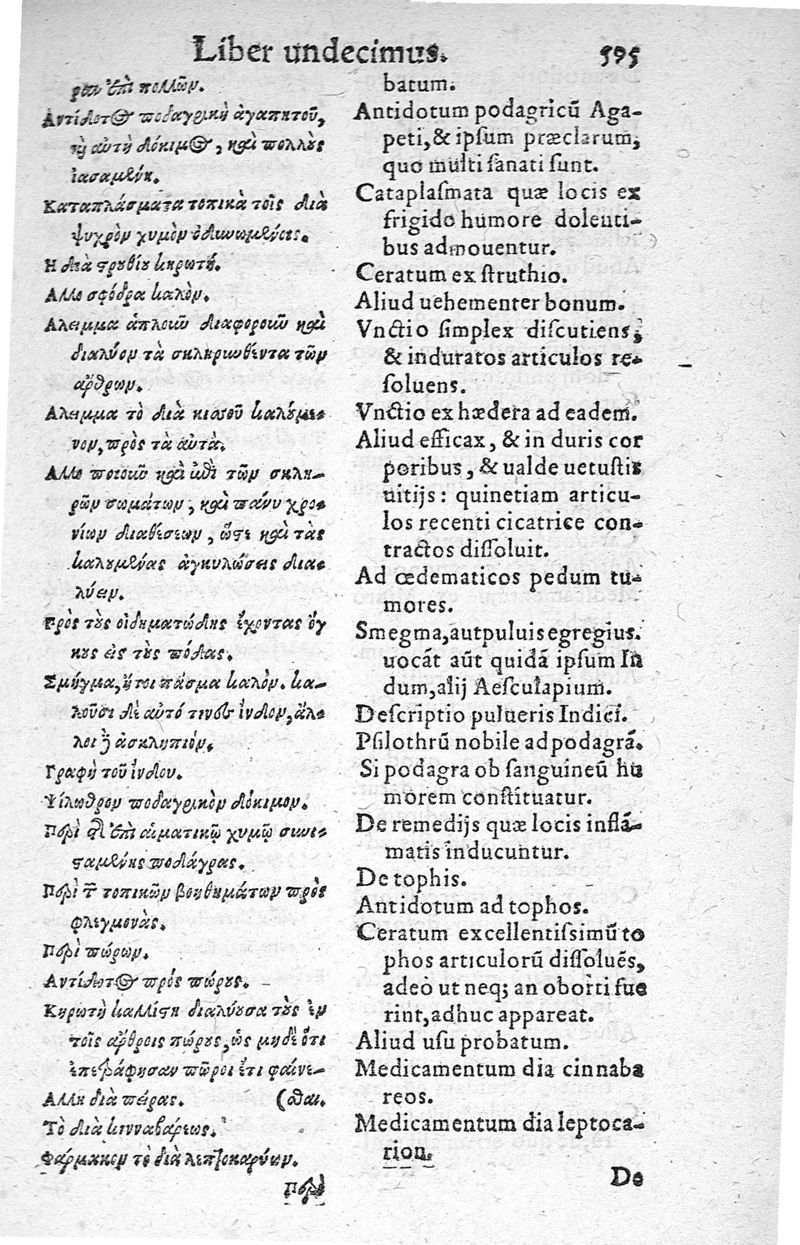 Liber undecimus. 595
ρον ἐπὶ πολλῶν.
Αντίδοτος ποδαγρικὴ ἀγαπητοῦ,
τῇ αὐτῇ δόκιμος, καὶ πολλοὺς
ἰασαμένη.
Καταπλάσματα τοπικὰ τοῖς διὰ
ψυχρὸν χυμὸν ὀδυνωμένοις.
Η διὰ στρουθίου κηρωτή.
Αλλο σφόδρα καλὸν.
Αλειμμα ἁπλοῦν διαφοροῦν καὶ
διαλύον τὰ σκληρωθέντα τῶν
ἄρθρων.
Αλειμμα τὸ διὰ κισσοῦ καλούμε-
νον, πρὸς τὰ αὐτὰ.
Αλλο ποιοῦν καὶ ἐπὶ τῶν σκλη-
ρῶν σωμάτων, καὶ πάνυ χρο-
νίων διαθέσεων, ὥστε καὶ τὰς
καλουμένας ἀγκυλώσεις δια-
λύειν.
Πρὸς τοὺς οἰδηματώδεις ἔχοντας ὄγ
κους εἰς τοὺς πόδας.
Σμῆγμα, ἤτοι πάσμα καλὸν. κα-
λοῦσι δὲ αὐτό τινες ἰνδον, ἄλ-
λοι ἢ ἀσκληπιόν.
Γραφὴ τοῦ ἰνδου.
Ψίλωθρον ποδαγρικὸν δόκιμον.
Περὶ τῆς ἐπὶ αἱματικῷ χυμῷ συνι-
σταμένης ποδάγρας.
Περὶ τῶν τοπικῶν βοηθημάτων πρὸς
φλεγμονὰς.
Περὶ πώρων.
Αντίδοτος πρὸς πώρους.
Κηρωτὴ καλλίστη διαλύουσα τοὺς ἐν
τοῖς ἄρθροις πώρους, ὡς μηδὲ ὅτι
ἐπεγράφησαν πῶροι ἔτι φαίνε-
Αλλη διὰ πείρας. (σθαι.
Τὸ διὰ κινναβάρεως.
Φάρμακον τὸ διὰ λεπτοκαρύων.
Περὶ
batum.
Antidotum podagricũ Aga-
peti, & ipsum præclarum,
quo multi sanati sunt.
Cataplasmata quæ locis ex
frigido humore dolenti-
bus admouentur.
Ceratum ex struthio.
Aliud uehementer bonum.
Vnctio simplex discutiens,
& induratos articulos re-
soluens.
Vnctio ex hædera ad eadem.
Aliud efficax, & in duris cor
poribus, & ualde uetustis
uitijs: quinetiam articu-
los recenti cicatrice con-
tractos dissoluit.
Ad œdematicos pedum tu-
mores.
Smegma, aut puluis egregius.
uocãt aũt quidã ipsum In
dum, alij Aesculapium.
Descriptio pulueris Indici.
Psilothrũ nobile ad podagrã.
Si podagra ob sanguineũ hu
morem constituatur.
De remedijs quæ locis inflã-
matis inducuntur.
De tophis.
Antidotum ad tophos.
Ceratum excellentissimũ to
phos articulorũ dissoluẽs,
adeò ut neq; an oborti fue
rint, adhuc appareat.
Aliud usu probatum.
Medicamentum dia cinnaba
reos.
Medicamentum dia leptoca-
rion.
De